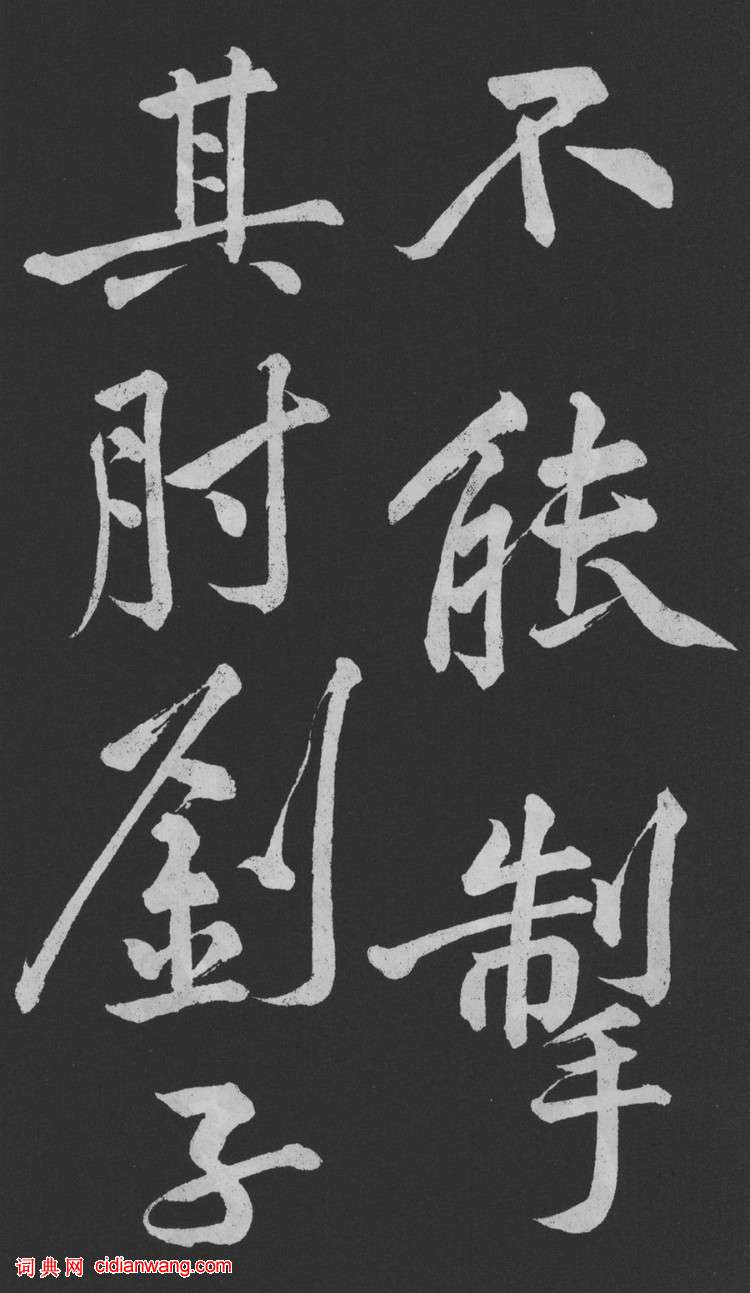 不能掣
其肘劉子
词典网 cidianwang.com